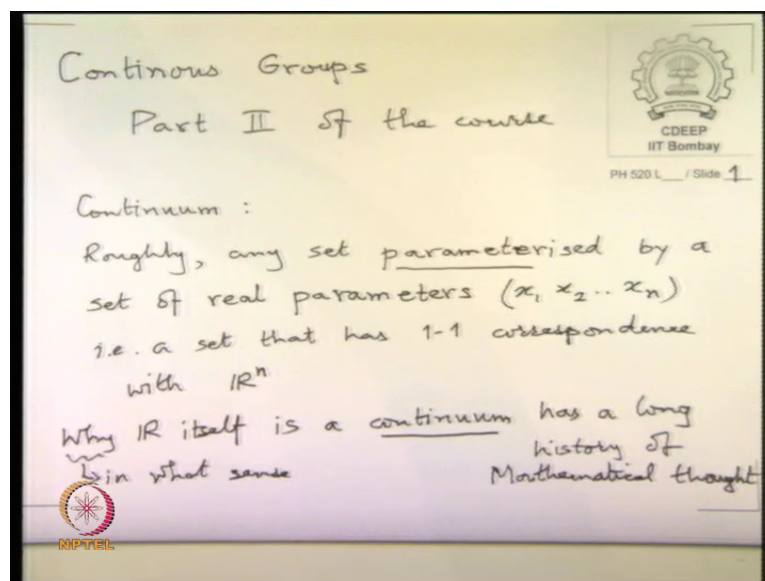 Continous Groups
Part II of the course
CDEEP
IIT Bombay
PH 520 L___ / Slide 1
Continuum :
Roughly, any set parameterised by a
set of real parameters (x₁ x₂ .. xₙ)
i.e. a set that has 1-1 correspondence
with ℝⁿ
Why ℝ itself is a continuum has a long
history of
↳ in what sense Mathematical thought
NPTEL